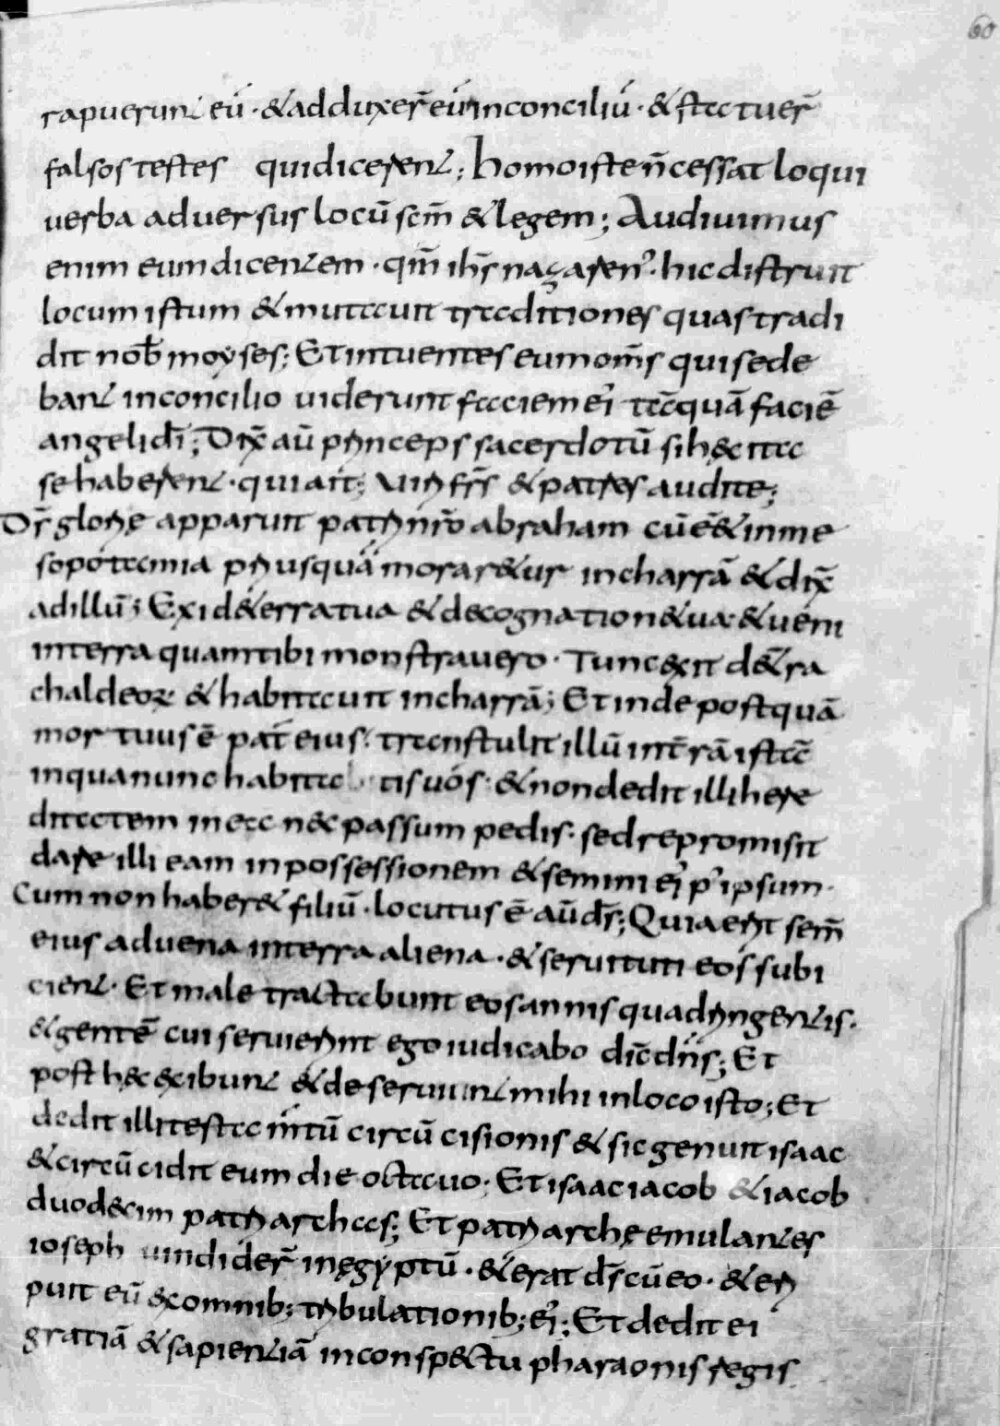 60
rapuerunt eū · & adduxer̄ eū in conciliū · & statuer̄
falsos testes qui dicerent ; homo iste n̄ cessat loqui
uerba aduersus locū scm̄ & legem ; Audiuimus
enim eum dicentem · qm̄ ih̄s nazaren' · hic distruit
locum istum & mutauit traditiones quas tradi
dit nob̄ moyses ; Et intuentes eum om̄s qui sede
bant in concilio uiderunt faciem ei' tā̄quā faciē
angeli dī ; Dix̄ aū princeps sacerdotū si hęc ita
se haberent · qui ait ; Viri frs̄ & patres audite ;
Ds̄ glorię apparuit patri nr̄o abraham cū ēēt in me
sopotamia priusquā moraretur in charrā & dix̄
ad illū ; Exi de terra tua & de cognatione tua & ueni
in terra quam tibi monstrauero · Tunc exiit de t̄ra
chaldeoꝝ & habitauit in charrā ; Et inde postquā
mortuus ē pat̄ eius · transtulit illū in t̄rā istā
in qua nunc habita tis uos · & non dedit illi here
ditatem in ea nec passum pedis · sed repromisit
dare illi eam in possessionem & semini ei' p' ipsum ·
Cum non haberet filiū · locutus ē aū ds̄ ; Quia erit sem̄
eius aduena in terra aliena · & seruituti eos subi
cient · Et male tractabunt eos annis quadringentis ·
& gentē cui seruierint ego iudicabo dic̄ dn̄s ; Et
post hęc exibunt & deseruiunt mihi in loco isto ; Et
dedit illi testamtū circūcisionis & sic genuit isaac
& circūcidit eum die octauo ; Et isaac iacob & iacob
duodecim patriarchas ; Et patriarchę emulantes
ioseph uindider̄ in ęgyptū · & erat ds̄ cū eo · & eri
puit eū ex omnib; tribulationib; ei' ; Et dedit ei
gratiā & sapientiā in conspectu pharaonis regis